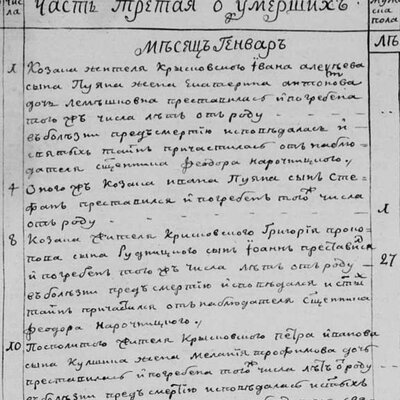 Часть третая о умершихъ
МѢСЯЦЪ ГЕНВАРЬ
1 Козака жителя Крисковского Ивана Алеѯѣева
сына Пуяна жена Екатерина Антонова
дочъ преставилась и погребена
того жъ числа лѣтъ отъ роду
въ болѣзни предъ смертію исповѣдалась и
святыхъ таинъ причастилась отъ наблю-
дателя священника Феодора Нарочницкого
4 Оного жъ Козака Ивана Пуяна сынъ Сте-
фанъ преставился и погребенъ того жъ числа
отъ роду
8 Козака жителя Крисковского Григорія Проко-
пова сына Рудницкого сынъ Іоаннъ преставися
и погребенъ того жъ числа лѣтъ отъ роду
въ болѣзни предъ смертію исповѣдался и
таинъ причастился отъ наблюдателя священника
Феодора Нарочницкого
1
27
10 Посполитого жителя Крисковского Петра Иванова
сына жена Меланія Трофимова дочъ
преставилась и погребена того жъ числа лѣтъ отъ роду
въ болѣзни предъ смертію исповѣдалась и